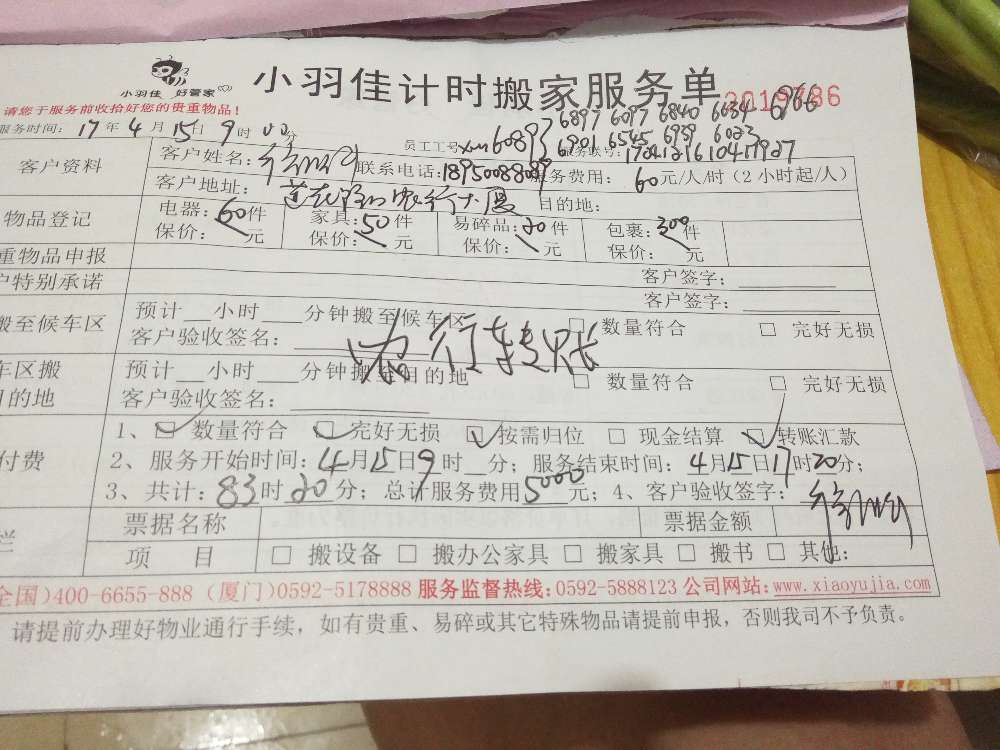 小羽佳 好管家
小羽佳计时搬家服务单
请您于服务前收拾好您的贵重物品!
服务时间: 17年4月15日9时00分
6897 6097 6840 6034 6966
员工工号: xm6089
6901 6545 6959 6023
客户资料
客户姓名:
联系电话:
服务费用: 60元/人/时(2小时起/人)
客户地址:
目的地:
物品登记
电器: 60件
家具: 50件
易碎品: 20件
包裹: 300件
保价: 元
保价: 元
保价: 元
保价: 元
重物品申报
客户签字:
户特别承诺
客户签字:
搬至候车区
预计__小时__分钟搬至候车区
□ 数量符合 □ 完好无损
客户验收签名:
行转账
车区搬
目的地
预计__小时__分钟搬至目的地
□ 数量符合 □ 完好无损
客户验收签名:
付费
1、☑ 数量符合 ☑ 完好无损 ☑ 按需归位 □ 现金结算 ☑ 转账汇款
2、服务开始时间: 4月15日9时__分; 服务结束时间: 4月15日17时20分;
3、共计: 83时20分; 总计服务费用5000元; 4、客户验收签字:
栏
票据名称
票据金额
项 目
□ 搬设备 □ 搬办公家具 □ 搬家具 □ 搬书 □ 其他:
全国)400-6655-888 (厦门)0592-5178888 服务监督热线: 0592-5888123 公司网站: www.xiaoyujia.com
请提前办理好物业通行手续, 如有贵重、易碎或其它特殊物品请提前申报, 否则我司不予负责。